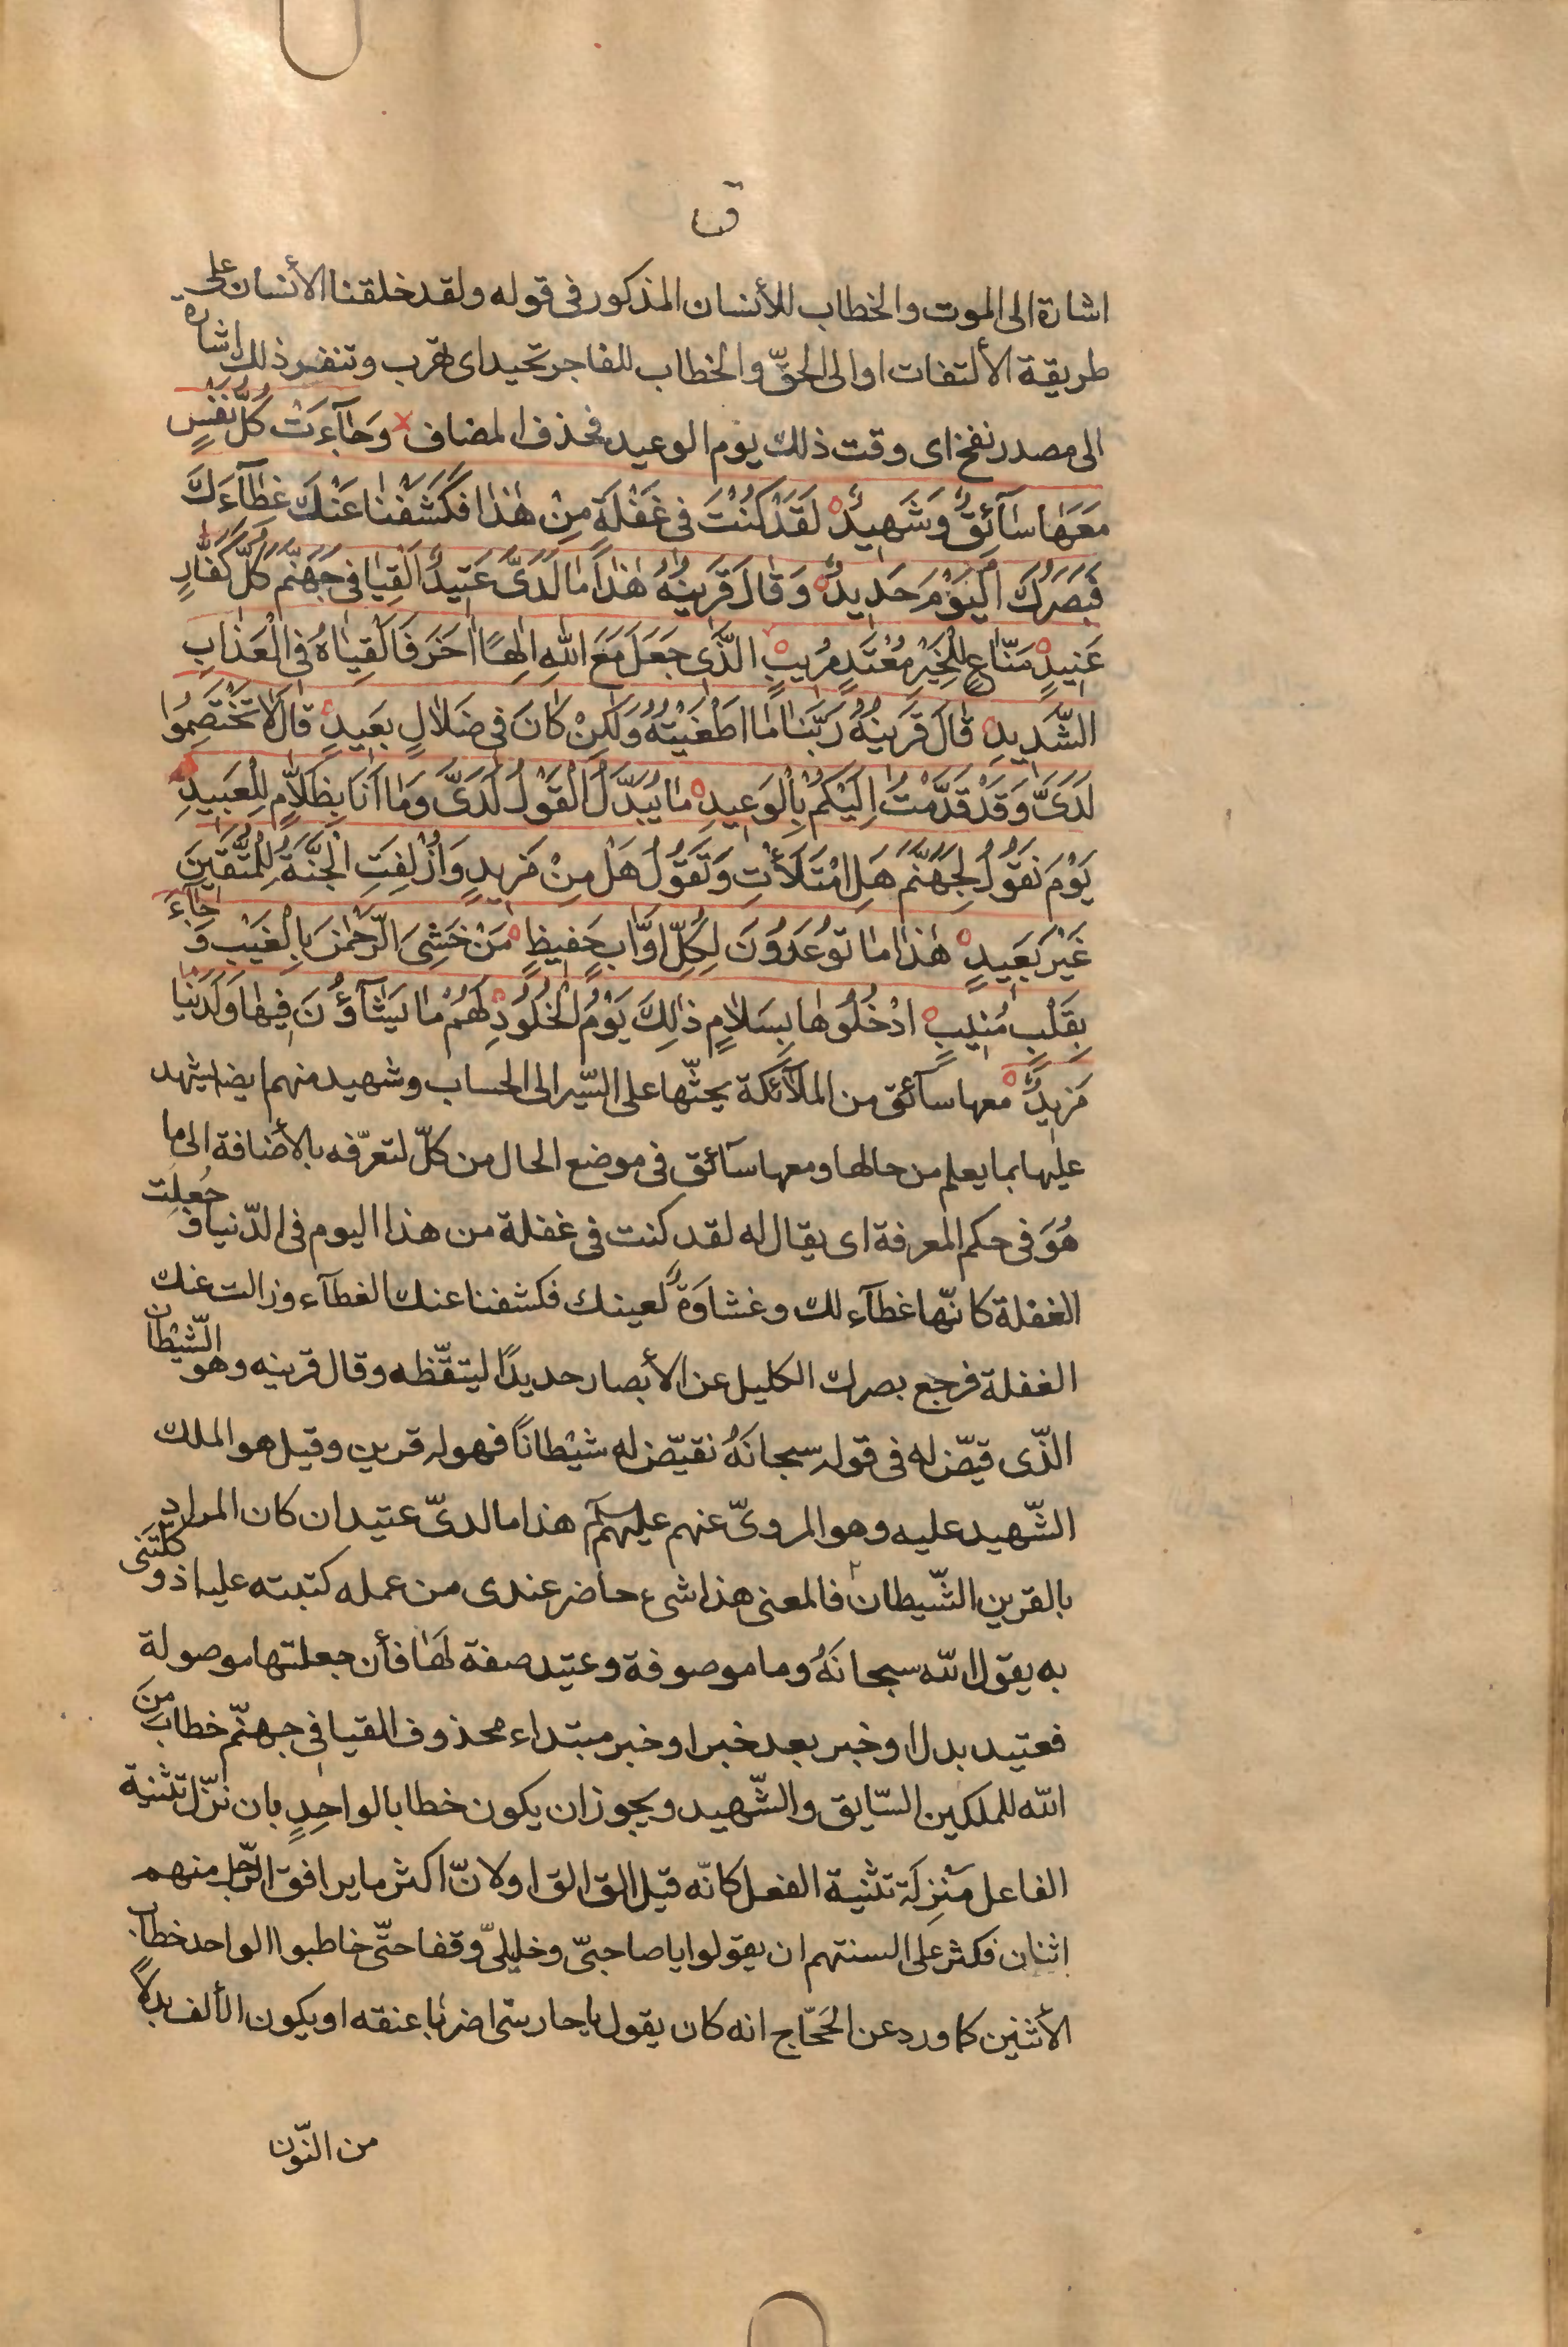 ق
اشارة الى الموت والخطاب للأنسان المذكور فى قوله ولقد خلقنا الأنسان على
طريقة الألتفات او الى الحقّ والخطاب للفاجر تحيد اى تهرب وتنفر ذلك اشارة
الى مصدر نفخ اى وقت ذلك يوم الوعيد فحذف المضاف وَجَآءَتْ كُلُّ نَفْسٍ
مَعَهَا سَآئِقٌ وَشَهِيدٌ لَقَدْ كُنْتَ فى غَفْلَةٍ مِنْ هٰذَا فَكَشَفْنَا عَنْكَ غِطَآءَكَ
فَبَصَرُكَ الْيَوْمَ حَدِيدٌ وَقَالَ قَرِينُهُ هٰذَا مَا لَدَىَّ عَتِيدٌ اَلْقِيَا فى جَهَنَّمَ كُلَّ كَفَّارٍ
عَنِيدٍ مَنَّاعٍ لِلْخَيْرِ مُعْتَدٍ مُرِيبٍ الَّذى جَعَلَ مَعَ اللهِ اِلٰهًا اٰخَرَ فَاَلْقِيَاهُ فى الْعَذَابِ
الشَّدِيدِ قَالَ قَرِينُهُ رَبَّنَا مَا اَطْغَيْتُهُ وَلٰكِنْ كَانَ فى ضَلَالٍ بَعِيدٍ قَالَ لَا تَخْتَصِمُوا
لَدَىَّ وَقَدْ قَدَّمْتُ اِلَيْكُمْ بِالْوَعِيدِ مَا يُبَدَّلُ الْقَوْلُ لَدَىَّ وَمَا اَنَا بِظَلَّامٍ لِلْعَبِيدِ
يَوْمَ نَقُولُ لِجَهَنَّمَ هَلِ امْتَلَأْتِ وَتَقُولُ هَلْ مِنْ مَزِيدٍ وَاُزْلِفَتِ الْجَنَّةُ لِلْمُتَّقِينَ
غَيْرَ بَعِيدٍ هٰذَا مَا تُوعَدُونَ لِكُلِّ اَوَّابٍ حَفِيظٍ مَنْ خَشِىَ الرَّحْمٰنَ بِالْغَيْبِ وَ جَآءَ
بِقَلْبٍ مُنِيبٍ ادْخُلُوهَا بِسَلَامٍ ذٰلِكَ يَوْمُ الْخُلُودِ لَهُمْ مَا يَشَآؤُنَ فِيهَا وَلَدَيْنَا
مَزِيدٌ معها سآئق من الملآئكة يحثّها على السّير الى الحساب وشهيد منهم ايضا يشهد
عليها بما يعلم من حالها ومعها سآئق فى موضع الحال من كلّ لتعرّفه بالأضافة الى ما
هُوَ فى حكم المعرفة اى يقال له لقد كنت فى غفلة من هذا اليوم فى الدّنيا فَ جُعِلَت
الغفلة كانّها غطآء لك وغشاوَةٌ لعينك فكشفنا عنك الغطآء وزالت عنك
الغفلة فرجع بصرك الكليل عن الأبصار حديدًا ليتقّظه وقال قرينه وهو الشّيْطان
الذّى قيّض له فى قوله سبحانَهُ نقيّض له شيْطانًا فهو له قرين وقيل هو الملك
الشّهيد عليه وهو المروىّ عنهم عليهم السّلم هذا ما لدىّ عتيد ان كان المراد
بالقرين الشّيطان فالمعنى هذا شىء حاضر عندى من عمله كتبته عليه اذ وكّلتَنى
به يقول الله سبحانَهُ وما موصوفة وعتيد صفة لهَا فأن جعلتها موصولة
فعتيد بدل او خبر بعد خبر او خبر مبتداء محذوف القيا فى جهنّم خطاب مِنَ
الله للملكين السّايق والشّهيد ويجوز ان يكون خطابا لواحِدٍ بان نزّل تثنية
الفاعل مَنْزِلَة تثنية الفعل كانّه قيل الق الق او لانّ اكثر ما يرافق الرّجل منهم
اثنان فكثر على السنتهم ان يقولوا يا صاحبىّ وخليلىّ وقفا حتّى خاطبوا الواحد خطاب
الأثنين كما ورد عن الحَجّاج انه كان يقول يا حارسىّ اضربا عنقه او يكون الألف بدلًا
من النّون